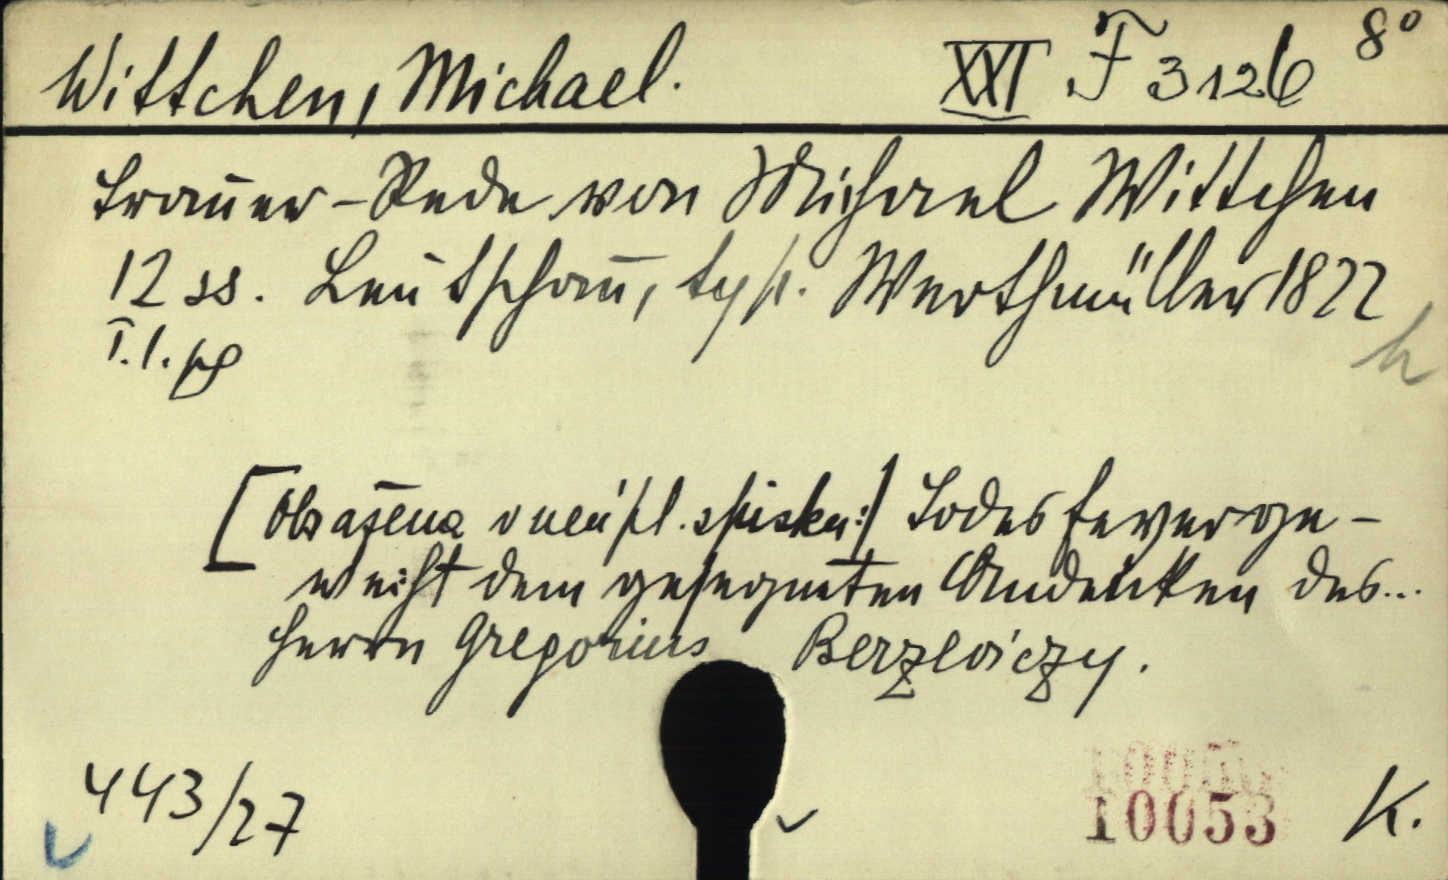 Wittchen, Michael. XXI F 3126 8°
Trauer-Rede von Michael Wittchen
12 ss. Leutschau, typ. Werthmüller 1822
I.1. h
[Obsažena v neúpl. spisku:] Todesfeyer ge-
weiht dem gesegneten Andenken des...
Herrn Gregorius Berzeviczy.
443/27 10053 K.